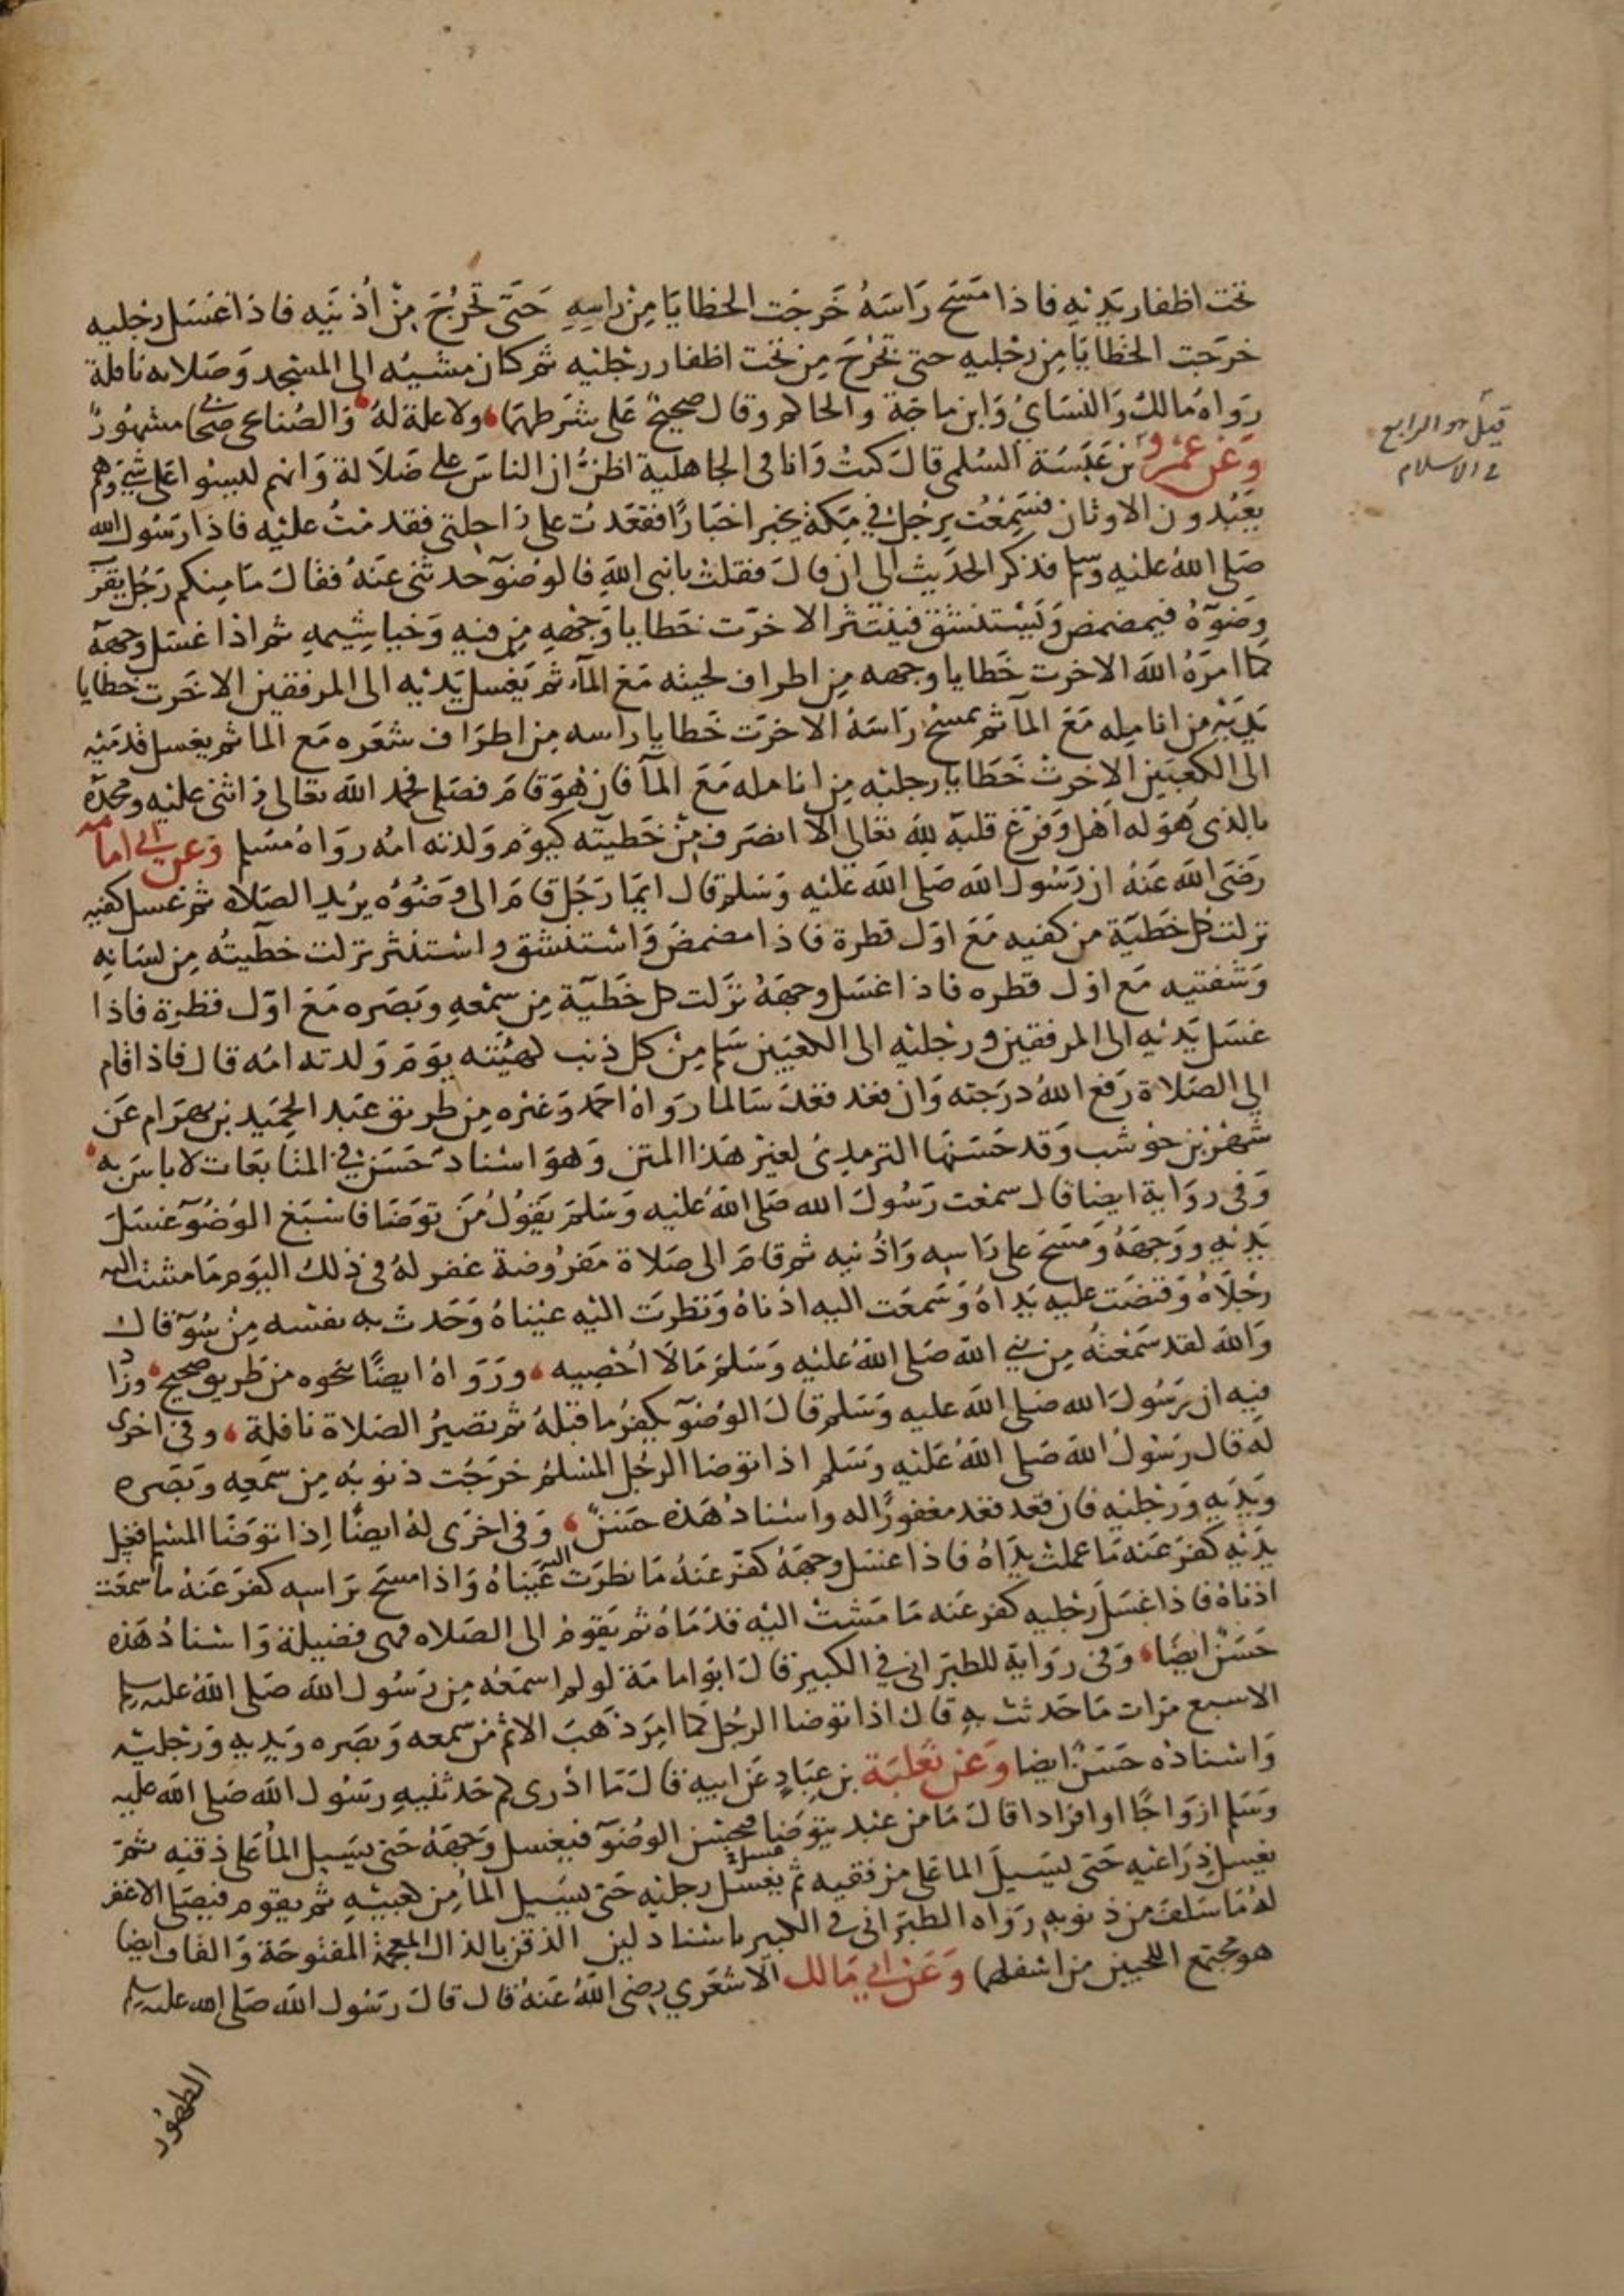 تحت اظفار يديه فاذا مسح رَاسَهُ خَرجَت الخطايَا مِنْ راسِهِ حَتّى تخرُجَ مِنْ اُذنَيه فاذا غسَل رجليه
خرجَت الخطايَا مِن رجليه حتى تخرجَ مِن تحت اظفار رجليه ثم كان مشيُه الى المسجد وَصَلاته نافلة
رَوَاه مَالكٌ وَالنسَايُ وَابن ماجَة والحاكم وقال صحيحٌ عَلى شرَطهمَا ولا علة لهُ وَالصُنابحي صحابي مشهُورٌ
وَعَن عَمرو بن عَبَسَة السُلمي قال كنتُ وَانا في الجاهلية اظنُّ ان الناسَ على ضَلاَلة وَانهم ليسُوا على شيٍ وَهم
يعَبُدون الاوثان فسَمِعْت برَجُل في مكة يخبر اخبَارًا فقعَدتُ على رَاحِلتي فقدمْتُ عليْه فاذا رَسُول الله
صَلى اللهُ عليه وسلم فذكر الحديث الى ان قال فقلت يا نبي اللهِ فالوضوٓ حدثني عَنهُ فقال مَا مِنكم رَجُل يقرّب
وَضوٓهُ فيمضمض وَيَسْتنشق فينتثر الا خرّت خطايا وَجْههِ مِن فيهِ وَخياشِيمهِ ثم اذا غسَل وجههُ
كما امرَهُ اللهُ الا خرت خَطايا وجهه مِن اطراف لحيته مَعَ المآء ثم يَغسل يَدَيْه الى المرفقين الا خَرت خطايا
يَدَيْه من انامِله مَعَ المآ ثم يمسحُ رَاسَهُ الا خرَت خَطايا راسه مِن اطرَاف شعَره مَع الما ثم يغسل قدمَيْه
الى الكعبَين الا خرت خَطايا رجليْه مِن انامله مَعَ المآ فان هُوَ قامَ فصَلى فحمد اللهَ تعالى وَاثنى عليْه ومجدَهُ
بالذى هُوَ له اهْل وَفرّغ قلبَهُ لله تعالى الا انصَرَف مِنْ خَطيئته كيَوْم وَلدته امُه روَاهُ مسَلم وَعَن ابي امامة
رَضىَ اللهَ عَنهُ ان رَسُول الله صَلى اللهَ عَليْه وَسَلم قال ايمَا رَجُل قامَ الى وَضُوُه يريد الصَلاة ثم غسل كفيه
نزلت كل خَطيَة من كفيه مَعَ اوَل قطرة فاذا مضمضَ وَاستنشق واستنثر نزلت خطيئتُه مِن لسَانهِ
وَشفتيه مَع اوَل قطره فاذا غسَل وجهَهُ نزَلت كل خَطيّة مِن سمْعهِ وبَصَره مَعَ اوّل قطرة فاذا
غسَل يَديْه الى المرفقين ورجليْه الى الكعبَين سَلم مِنْ كل ذنب كهيْئته يوَمَ وَلدته امُه قال فاذا قام
الى الصَلاة رَفع اللهُ درَجته وَان قعد قعَد سَالما رَوَاهُ احمد وَغيْره مِن طريق عَبد الحميد بن بهرَام عَن
شهْر بن حوْشب وَقد حَسَنهَا الترمذىُ لغيْر هَذا المتن وَهوَ اسْنادٌ حَسَن في المتابعَات لا باسَ به
وَفى روَاية ايضا قال سمعْت رَسُولَ الله صَلى اللهُ عَليْه وَسَلمَ يَقولُ مَن توَضَا فاسْبَغ الوُضُوٓ غسَلَ
يَدَيْهِ ووَجهَهُ وَمسَحَ على رَاسِه وَاذُنيه ثم قامَ الى صَلاة مَفرُوضة غفر لهُ فى ذلك اليوَم مَا مشت اليه
رجْلاَهُ وَقبَضَت عليه يَدَاهُ وَسَمعَت اليه اذنَاهُ وَنظرت اليْه عيْناهُ وَحَدث به نفسه مِنْ سُوٓ قال
وَالله لقد سَمْعتهُ مِن نبي الله صَلى اللهُ عَليْه وَسَلمَ مَالا احْصِيه ورَوَاهُ ايضًا بنحوه من طريق صحيح وزَادَ
فيه ان رَسُولَ الله صَلى اللهُ عليه وَسَلم قال الوُضوٓ يكفرُ مَا قبْلهُ ثم تصيرُ الصَلاة نافلة وفى اخرى
له قال رَسُولُ الله صَلى اللهُ عَليْه وَسَلم اذا توضا الرجُل المسْلم خرَجَت ذنوبُه مِن سمَعِه وَبَصَره
وَيَدَيه وَرجْليْه فان قعَد قعَد مغفورًا له واسْنادُ هَذه حَسَنٌ وَفى اخرَى لهُ ايضًا اذا توَضَا المسْلم فغسل
يَدَيْه كفرَ عَنه مَا عملت يدَاهُ فاذا غسَل وَجهَهُ كفر عَنهُ مَا نظرَت اليه عَيْناهُ وَاذا مسَح برَاسِه كفرَ عَنهُ مَا سمعَت
اذناهُ فاذا غسَل رَجْليه كفرَ عَنه مَا مَشت اليْه قدَمَاهُ ثم يَقومُ الى الصَلاه فهى فضيلة وَاسْنادُ هَذه
حَسَنٌ ايضًا وَفى روَايةٍ للطبَرانى في الكبير قال ابوُ امَامَة لو لم اسمَعْه مِن رَسُول الله صَلى اللهُ عليه وسلم
الا سبع مرَات مَا حَدثت بهِ قال اذا توضا الرجُل كما امِرَ ذهَبَ الاثم من سَمعه وَبصَره وَيَديه وَرَجْليْه
وَاسْنادُه حَسَنٌ ايضا وَعَن ثعْلبَة بن عِبَادٍ عَن ابيه قال مَا ادْرى كم حَدثنيهِ رسُول الله صَلى اللهُ عليه
وَسَلم ازوَاجًا او افرَادا قال مَا من عَبْد يتوَضا فيحْسن الوُضوٓ فيغسل وَجهَهُ حَتى يسَيل المآ عَلى ذقنه ثم
يغسل ذِرَاعَيْه حَتى يسَيلَ الما عَلى مرفقيه ثم يغسل رجليْه حَتى يسَيل المآ مِن كعبيْهِ ثم يقوم فيصَلى الا غفر
لهُ مَا سَلف من ذنوبهِ رَوَاه الطبَرانى فى الكبير باسْناد لين الذقن بالذال المعجمة المفتوحَة وَالقاف ايضا
هو مجتمع اللحيين من اسْفلهمَا وَعَن ابي مَالك الاشعَري رضى اللهُ عَنهُ قال قال رَسُول الله صَلى الله عليه وسلم
الطهُور
قيل هو الرابع
في الاسلام